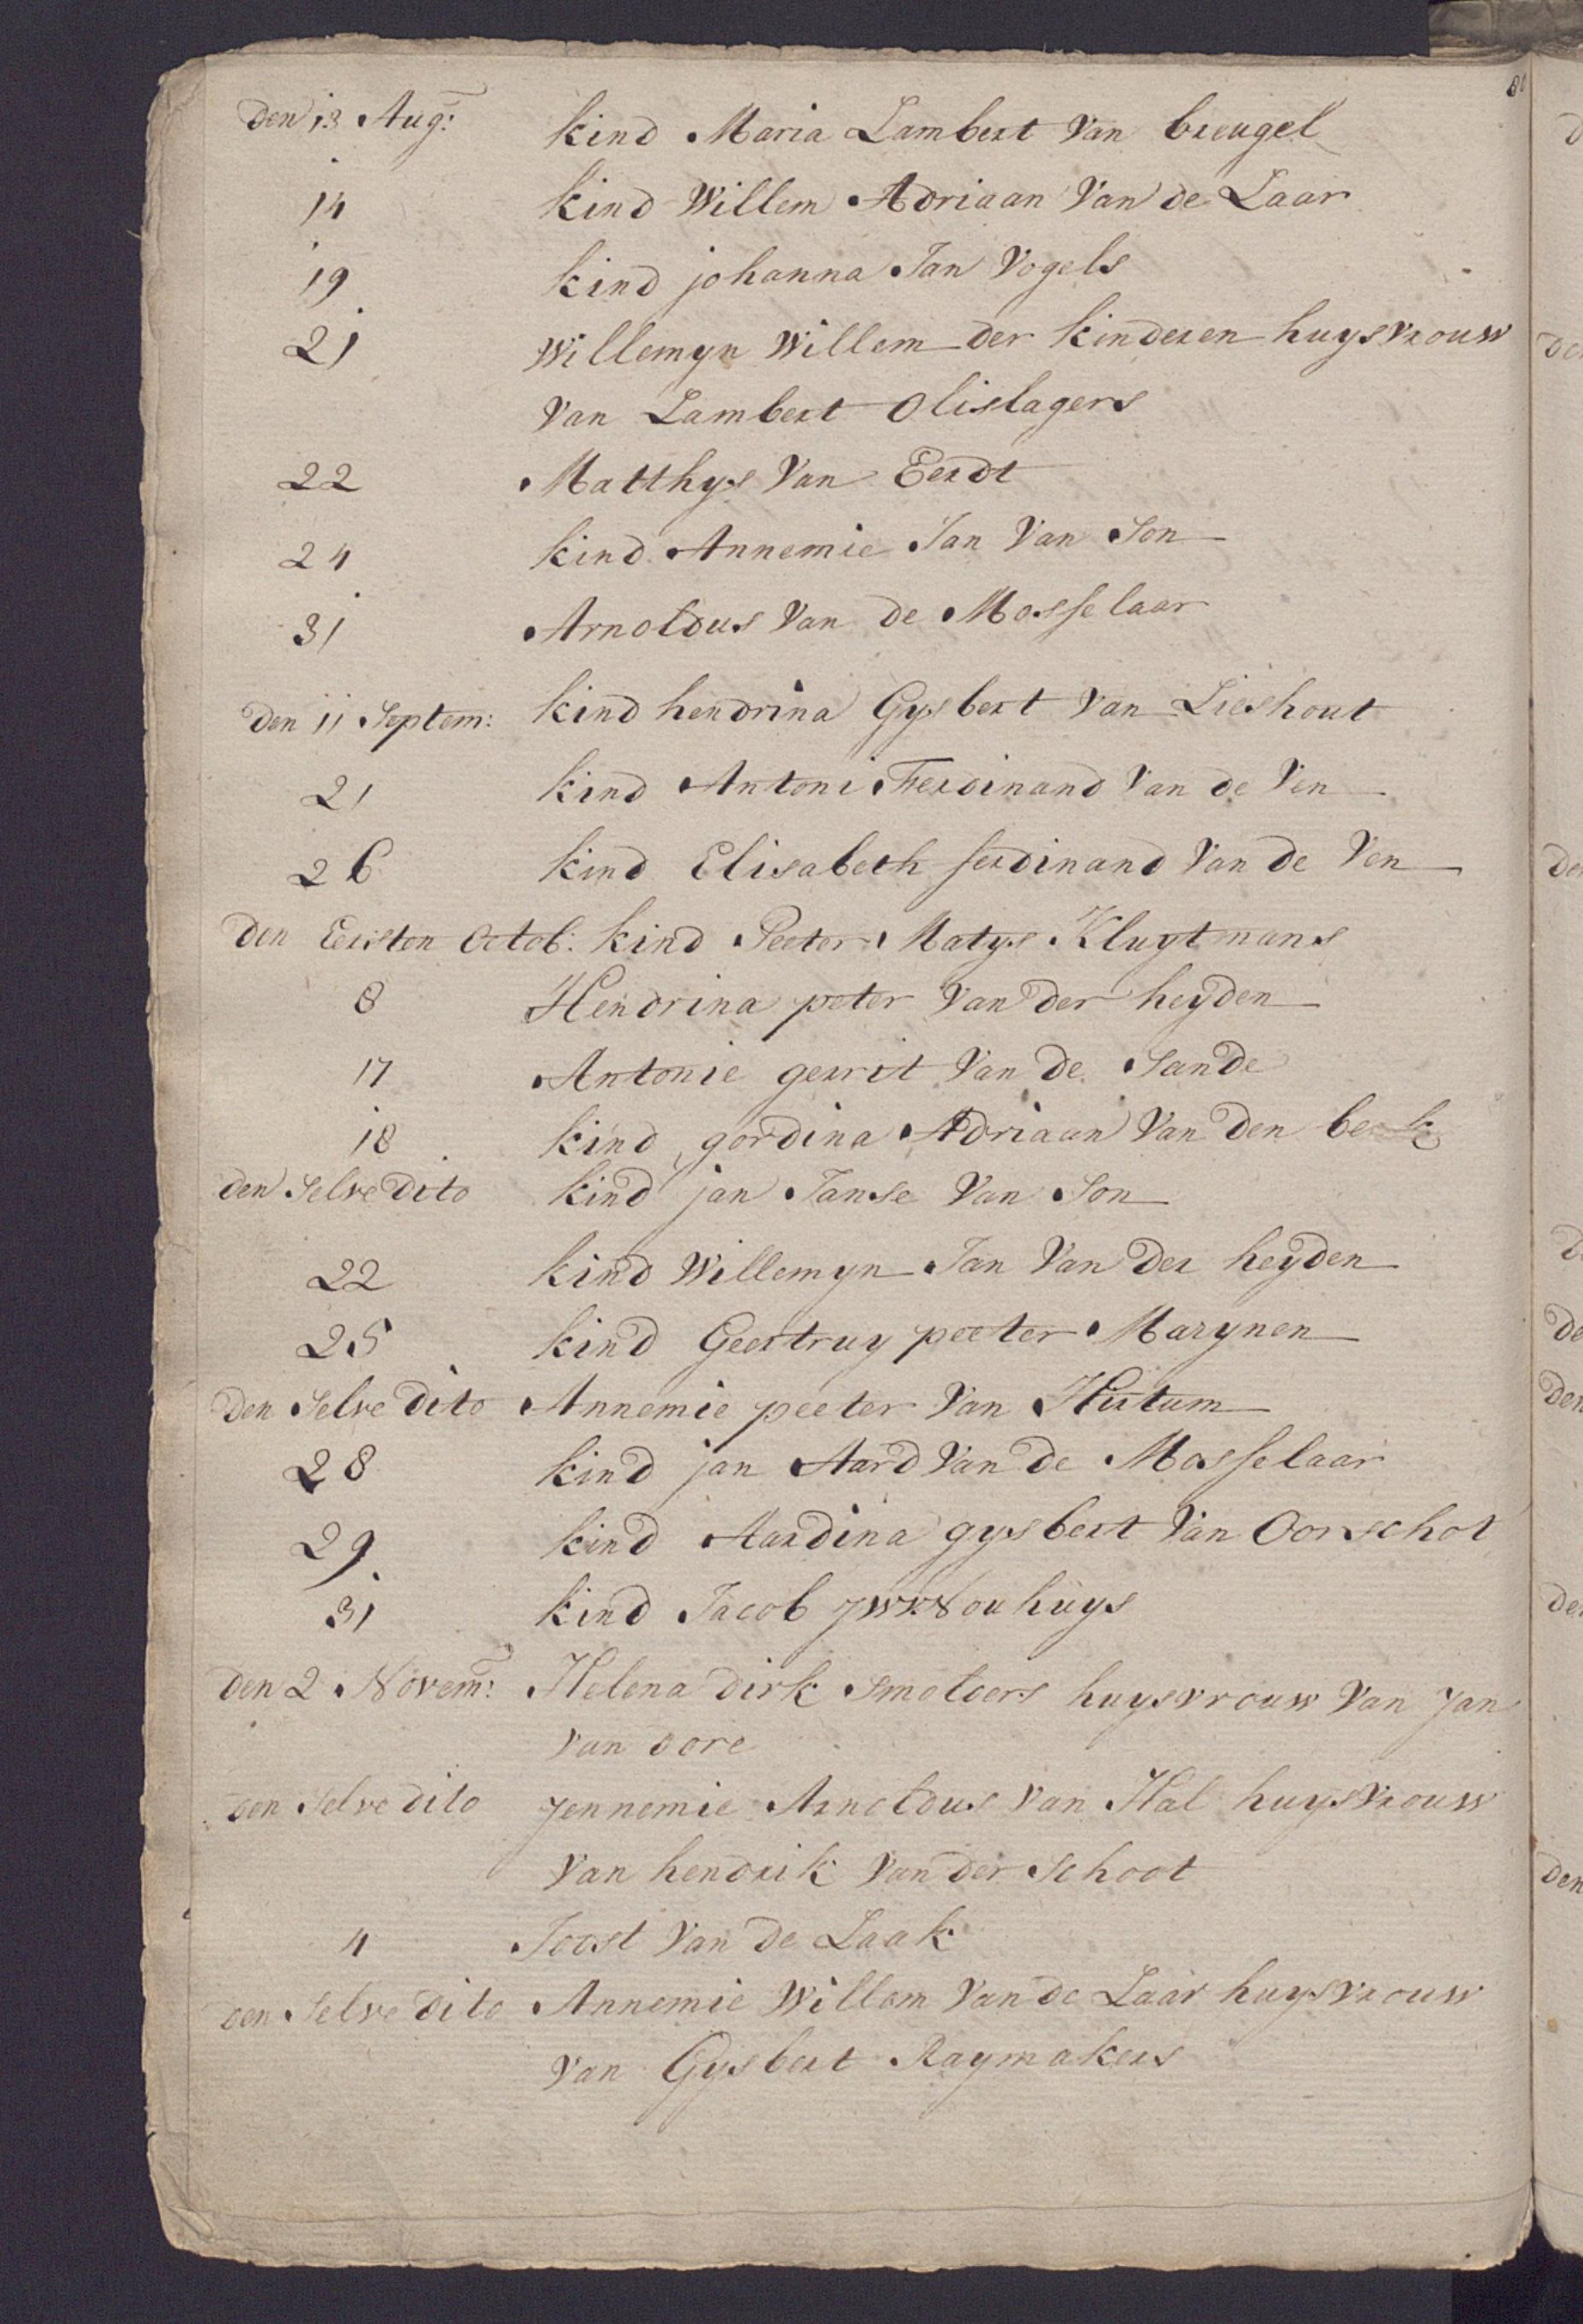 den 13 Aug: kind Maria Lambert Van breugel
14 kind Willem Adriaan Van de Laar
19 kind johanna Jan Vogels
21 Willemyn Willem der kinderen huysvrouw
Van Lambert Olislagers
22 Matthys Van Eerdt
24 kind Annemie Jan Van Son
31 Arnoldus Van de Mosselaar
den 11 Septem: kind hendrina Gysbert Van Lieshout
21 kind Antoni Ferdinand Van de Ven
26 kind Elisabeth ferdinand Van de Ven
den Eersten Octob: kind Peeter Matys Kluytmans
8 Hendrina peter Van der heyden
17 Antonie gerrit Van de Sande
18 kind gordina Adriaan Van den
den Selve dito kind jan Janse Van Son
22 kind Willemyn Jan Van der heyden
25 kind Geertruy peeter Marynen
den Selve dito Annemie peeter Van Hutum
28 kind jan Aard Van de Mosselaar
29 kind Aardina gysbert Van Oorschot
31 kind Jacob
den 2 Novem: Helena dirk Smolders huysvrouw Van Jan
Van dore
den Selve dito Jennemie Arnoldus Van Hal huysvrouw
Van hendrik Van der Schoot
4 Joost Van de Laak
den Selve dito Annemie Willem Van de Laar huysvrouw
Van Gysbert Raymakers